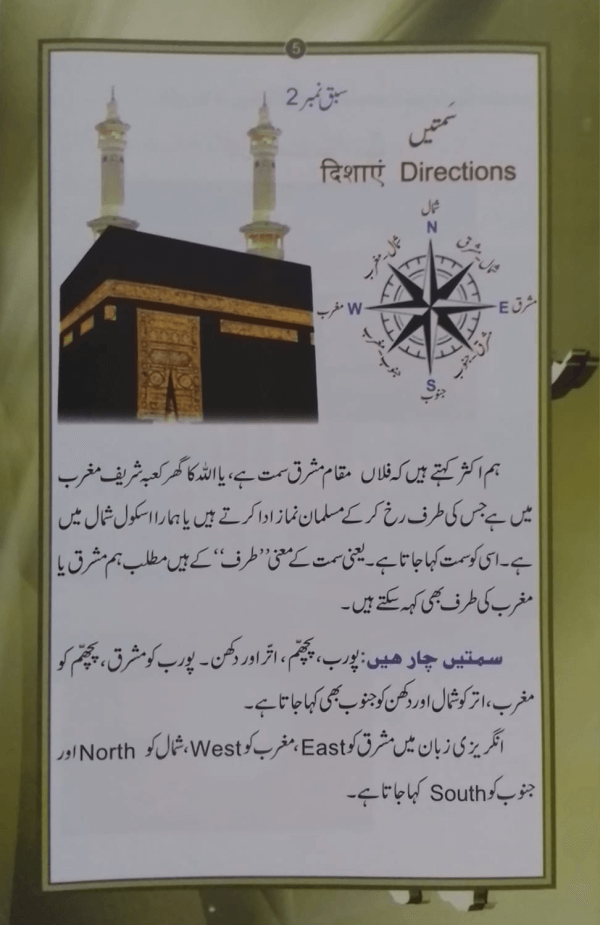 5
سبق نمبر 2
سَمتیں
दिशाएं Directions
شمال
N
شمال-مغرب
شمال-مشرق
مغرب W
E مشرق
جنوب-مغرب
مشرق-جنوب
S
جنوب
ہم اکثر کہتے ہیں کہ فلاں مقام مشرق سمت ہے، یا اللہ کا گھر کعبہ شریف مغرب
میں ہے جس کی طرف رخ کر کے مسلمان نماز ادا کرتے ہیں یا ہمارا اسکول شمال میں
ہے۔ اسی کو سمت کہا جاتا ہے۔ یعنی سمت کے معنی ”طرف“ کے ہیں مطلب ہم مشرق یا
مغرب کی طرف بھی کہہ سکتے ہیں۔
سمتیں چار ھیں: پورب، پچھّم، اتّر اور دکھن۔ پورب کو مشرق، پچھّم کو
مغرب، اتر کو شمال اور دکھن کو جنوب بھی کہا جاتا ہے۔
انگریزی زبان میں مشرق کو East، مغرب کو West، شمال کو North اور
جنوب کو South کہا جاتا ہے۔